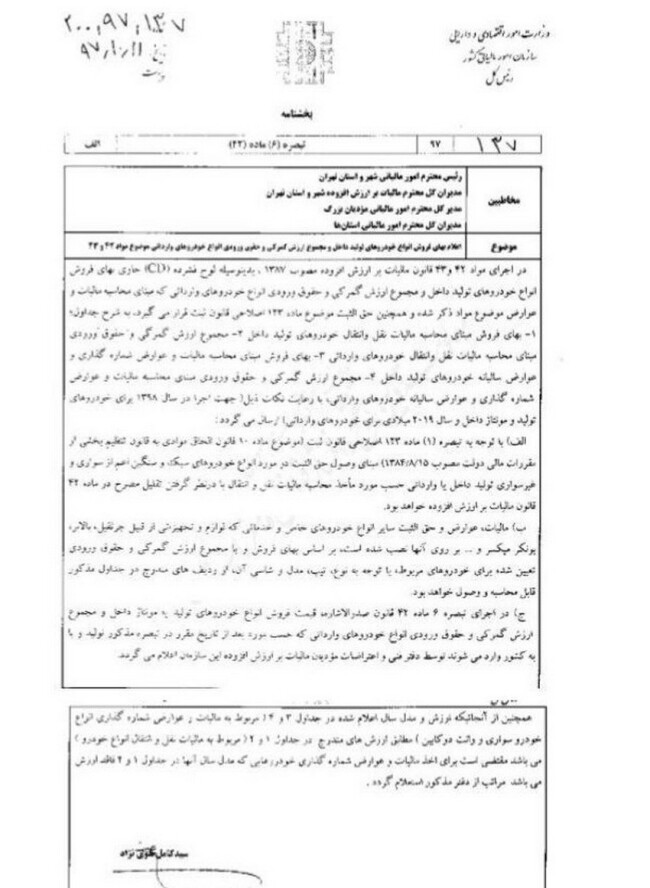 وزارت امور اقتصادی و دارایی
سازمان امور مالیاتی کشور
رئیس کل
۲۰۰,۹۷,۱۳۷
بخشنامه
۱۳۷ ۹۷ تبصره (۶) ماده (۴۲) الف
مخاطبین
رئیس محترم امور مالیاتی شهر و استان تهران
مدیران کل محترم مالیات بر ارزش افزوده شهر و استان تهران
مدیر کل محترم امور مالیاتی مؤدیان بزرگ
مدیران کل محترم امور مالیاتی استان‌ها
موضوع
اعلام بهای فروش انواع خودروهای تولید داخل و مجموع ارزش گمرکی و حقوق ورودی انواع خودروهای وارداتی موضوع مواد ۴۲ و ۴۳
در اجرای مواد ۴۲ و ۴۳ قانون مالیات بر ارزش افزوده مصوب ۱۳۸۷ ، بدینوسیله لوح فشرده (CD) حاوی بهای فروش
انواع خودروهای تولید داخل و مجموع ارزش گمرکی و حقوق ورودی انواع خودروهای وارداتی که مبنای محاسبه مالیات و
عوارض موضوع مواد ذکر شده و همچنین حق الثبت موضوع ماده ۱۲۳ اصلاحی قانون ثبت قرار می گیرد، به شرح جداول؛
۱- بهای فروش مبنای محاسبه مالیات نقل وانتقال خودروهای تولید داخل ۲- مجموع ارزش گمرکی و حقوق ورودی
مبنای محاسبه مالیات نقل وانتقال خودروهای وارداتی ۳- بهای فروش مبنای محاسبه مالیات و عوارض شماره گذاری و
عوارض سالیانه خودروهای تولید داخل ۴- مجموع ارزش گمرکی و حقوق ورودی مبنای محاسبه مالیات و عوارض
شماره گذاری و عوارض سالیانه خودروهای وارداتی، با رعایت نکات ذیل( جهت اجرا در سال ۱۳۹۸ برای خودروهای
تولید و مونتاژ داخل و سال ۲۰۱۹ میلادی برای خودروهای وارداتی) ارسال می گردد :
الف) با توجه به تبصره (۱) ماده ۱۲۳ اصلاحی قانون ثبت (موضوع ماده ۱۰ قانون الحاق موادی به قانون تنظیم بخشی از
مقررات مالی دولت مصوب ۱۳۸۴/۸/۱۵) مبنای وصول حق الثبت در مورد انواع خودروهای سبک و سنگین اعم از سواری و
غیرسواری تولید داخل یا وارداتی حسب مورد مأخذ محاسبه مالیات نقل و انتقال با درنظر گرفتن تقلیل مصرح در ماده ۴۲
قانون مالیات بر ارزش افزوده خواهد بود.
ب) مالیات، عوارض و حق الثبت سایر انواع خودروهای خاص و خدماتی که لوازم و تجهیزاتی از قبیل جرثقیل، بالابر،
بونکر میکسر و ... بر روی آنها نصب شده است، بر اساس بهای فروش و یا مجموع ارزش گمرکی و حقوق ورودی
تعیین شده برای خودروهای مربوط، با توجه به نوع، تیپ، مدل و شاسی آن، از ردیف های مندرج در جداول مذکور
قابل محاسبه و وصول خواهد بود.
ج) در اجرای تبصره ۶ ماده ۴۲ قانون صدرالاشاره، قیمت فروش انواع خودروهای تولید یا مونتاژ داخل و مجموع
ارزش گمرکی و حقوق ورودی انواع خودروهای وارداتی که حسب مورد بعد از تاریخ مقرر در تبصره مذکور تولید و یا
به کشور وارد می شوند توسط دفتر فنی و اعتراضات مؤدیان مالیات بر ارزش افزوده این سازمان اعلام می گردد.
همچنین از آنجائیکه ارزش و مدل سال اعلام شده در جداول ۳ و ۴ ( مربوط به مالیات و عوارض شماره گذاری انواع
خودرو سواری و وانت دوکابین ) مطابق ارزش های مندرج در جداول ۱ و ۲ ( مربوط به مالیات نقل و انتقال انواع خودرو )
می باشد مقتضی است برای اخذ مالیات و عوارض شماره گذاری خودروهایی که مدل سال آنها در جداول ۱ و ۲ فاقد ارزش
می باشد مراتب از دفتر مذکور استعلام گردد .
سید کامل تقوی نژاد